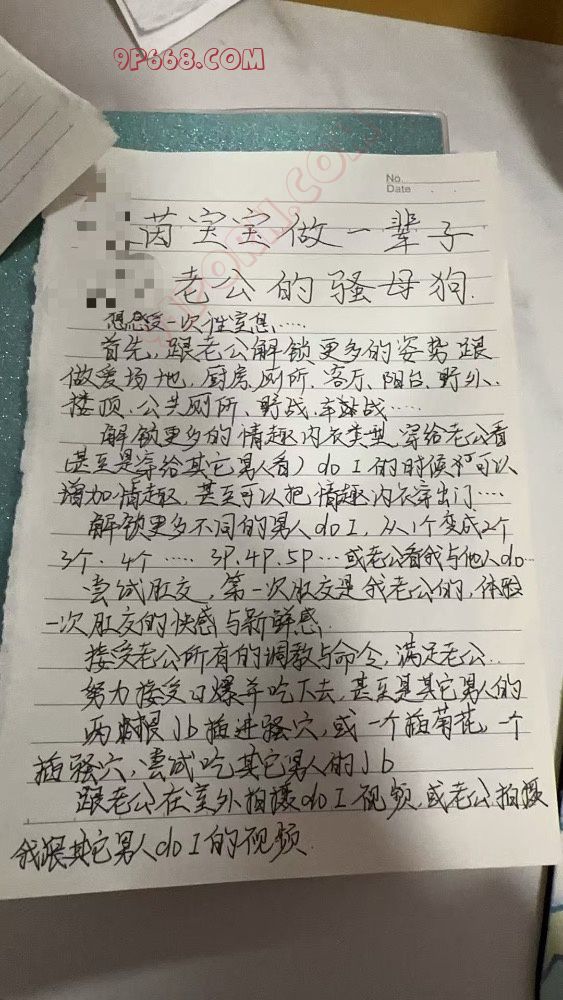 9P668.COM
No.
Date
茵宝宝做一辈子
老公的骚母狗.
想感受一次性窒息……
首先,跟老公解锁更多的姿势跟
做爱场地,厨房、厕所、客厅、阳台、野外、
楼顶、公共厕所、野战、车战……
解锁更多的情趣内衣类型,穿给老公看
(甚至是穿给其它男人看)do I 的时候可以
增加情趣,甚至可以把情趣内衣穿出门……
解锁更多不同的男人do I,从1个变成2个
3个.4个…… 3P.4P.5P…或老公看我与他人do…
尝试肛交,第一次肛交是我老公的,体验
一次肛交的快感与新鲜感.
接受老公所有的调教与命令,满足老公…
努力接受口爆并吃下去,甚至是其它男人的
两根Jb插进骚穴,或一个插菊花,一个
插骚穴,尝试吃其它男人的Jb
跟老公在室外拍摄do I视频,或老公拍摄
我跟其它男人do I的视频.